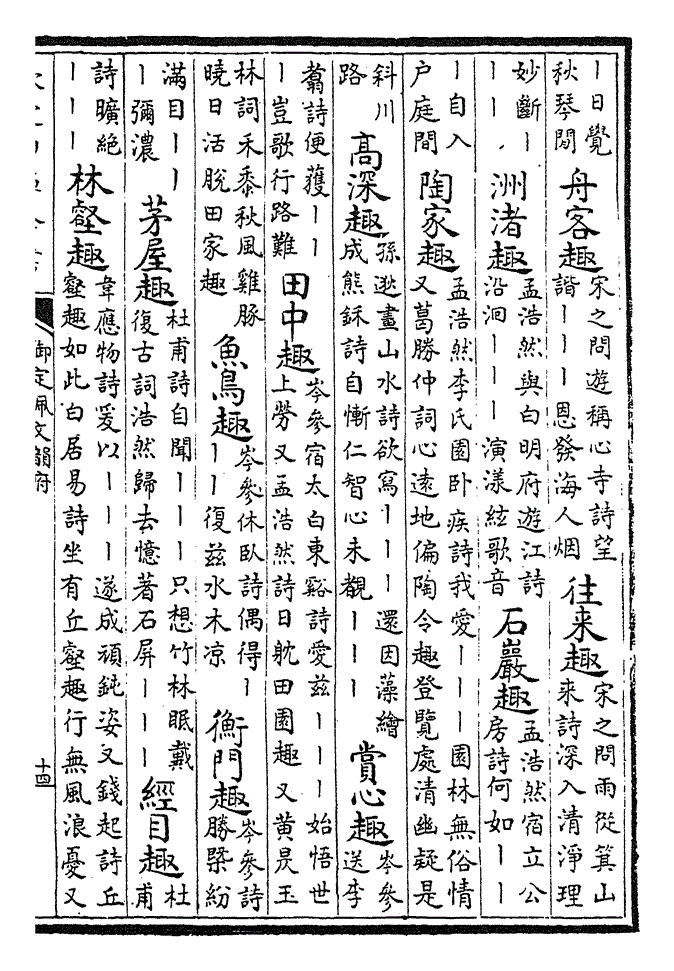 ｜日覺
秋琴閒
舟客趣
宋之問遊稱心寺詩望
諧｜｜｜恩發海人烟
往来趣
宋之問雨從箕山
來詩深入清淨理
妙斷｜
｜｜
洲渚趣
孟浩然與白明府遊江詩
沿洄｜｜｜演漾絃歌音
石巖趣
孟浩然宿立公
房詩何如｜｜
｜自入
户庭間
陶家趣
孟浩然李氏園卧疾詩我愛｜｜｜園林無俗情
又葛勝仲詞心遠地偏陶令趣登覽處清幽疑是
斜川
路
高深趣
孫逖畫山水詩欲寫｜｜｜還因藻繪
成熊鉌詩自慚仁智心未覩｜｜｜
賞心趣
岑參
送李
翥詩便獲｜｜
｜豈歌行路難
田中趣
岑參宿太白東谿詩愛兹｜｜｜始悟世
上勞又孟浩然詩日躭田園趣又黄炅玉
林詞禾黍秋風雞豚
曉日活脱田家趣
魚鳥趣
岑參休臥詩偶得｜
｜｜復兹水木凉
衡門趣
岑參詩
勝槩紛
滿目｜｜
｜彌濃
茅屋趣
杜甫詩自聞｜｜｜只想竹林眠戴
復古詞浩然歸去憶著石屏｜｜｜
經目趣
杜
甫
詩曠絶
｜｜｜
林壑趣
韋應物詩爰以｜｜｜遂成頑鈍姿又錢起詩丘
壑趣如此白居易詩坐有丘壑趣行無風浪憂又
御定佩文韻府
十四